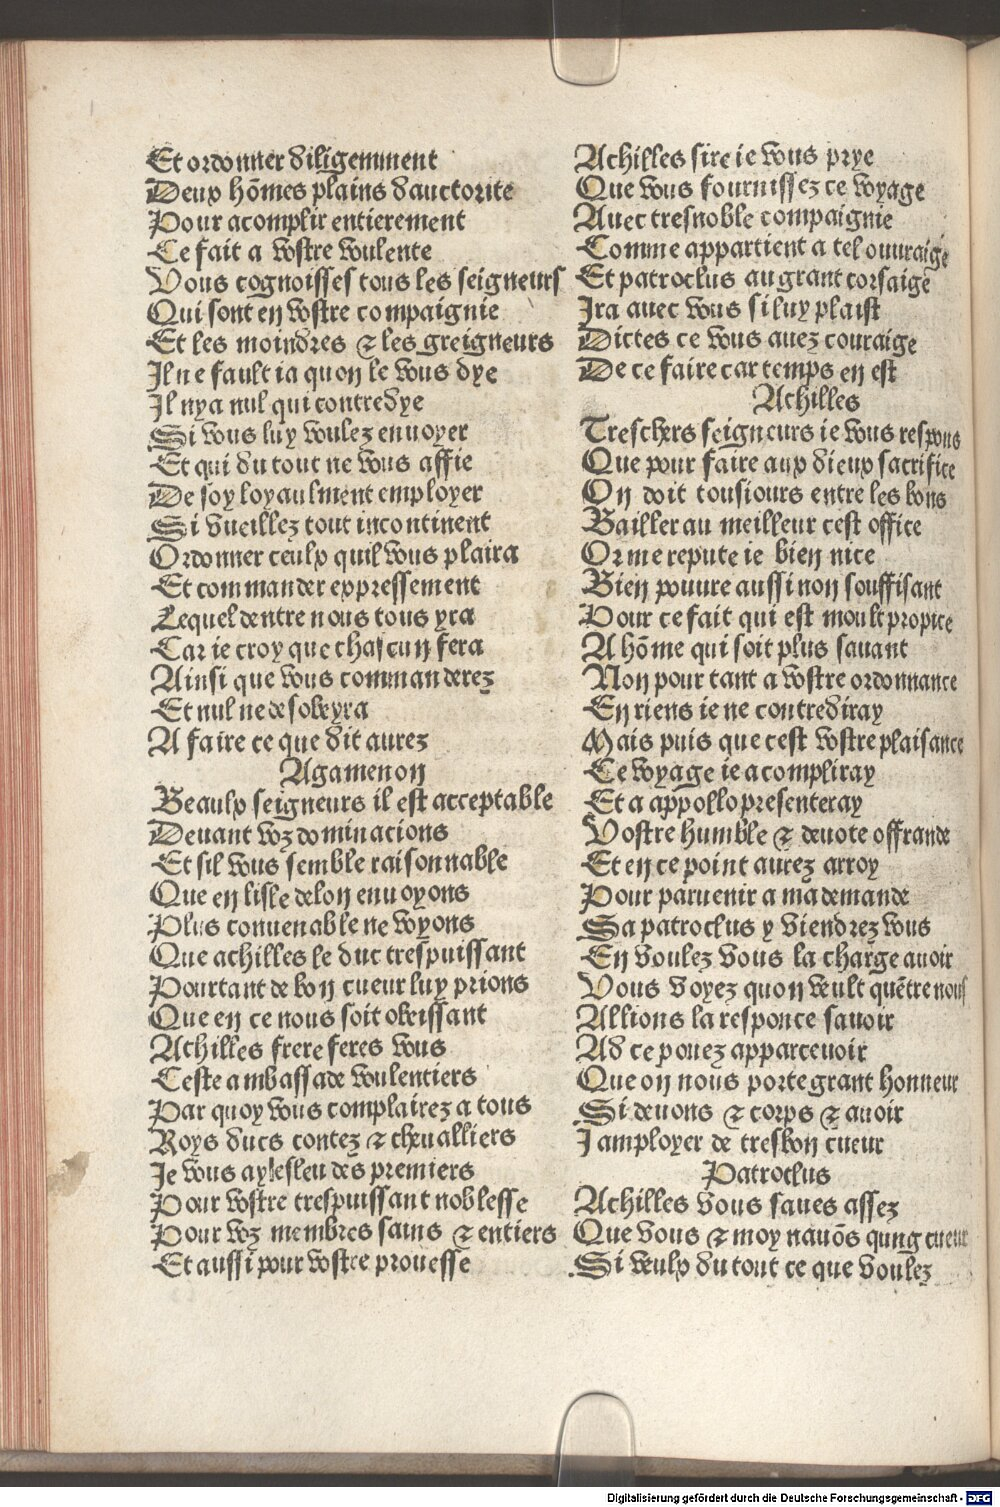 Et ordonner diligemment
Deux hõmes plains dauctorite
Pour acomplir entierement
Ce fait a vostre voulente
Vous cognoisses tous les seigneurs
Qui sont en vostre compaignie
Et les moindres & les greigneurs
Il ne fault ia quon le vous dye
Il nya nul qui contredye
Si vous luy voulez enuoyer
Et qui du tout ne vous affie
De soy loyaulment employer
Si vueillez tout incontinent
Ordonner ceulx quil vous plaira
Et commander expressement
Lequel dentre nous tous yra
Car ie croy que chascun fera
Ainsi que vous commanderez
Et nul ne desobeyra
A faire ce que dit aurez
Agamenon
Beaulx seigneurs il est acceptable
Deuant voz dominacions
Et sil vous semble raisonnable
Que en lisle delon enuoyons
Plus conuenable ne voyons
Que achilles le duc trespuissant
Pourtant de bon cueur luy prions
Que en ce nous soit obeissant
Achilles frere feres vous
Ceste ambassade voulentiers
Par quoy vous complairez a tous
Roys ducs contez & cheualliers
Je vous ay esleu des premiers
Pour vostre trespuissant noblesse
Pour voz membres sains & entiers
Et aussi pour vostre prouesse
Achilles sire ie vous prye
Que vous fournissez ce voyage
Auec tresnoble compaignie
Comme appartient a tel ouuraige
Et patroclus au grant corsaige
Ira auec vous si luy plaist
Dictes ce vous auez couraige
De ce faire car temps en est
Achilles
Treschers seigneurs ie vous respons
Que pour faire aux dieux sacrifice
On doit tousiours entre les bons
Bailler au meilleur cest office
Or me repute ie bien nice
Bien pouure aussi non souffisant
Pour ce fait qui est moult propice
A hõme qui soit plus sauant
Non pour tant a vostre ordonnance
En riens ie ne contrediray
Mais puis que cest vostre plaisance
Ce voyage ie acompliray
Et a appollo presenteray
Vostre humble & deuote offrande
Et en ce point aurez arroy
Pour paruenir a ma demande
Sa patroclus y viendrez vous
En voulez vous la charge auoir
Vous voyez quon veult quẽtre nous
Allions la responce sauoir
Ad ce pouez apparceuoir
Que on nous porte grant honneur
Si deuons & corps & auoir
J amployer de tresbon cueur
Patroclus
Achilles vous saues assez
Que vous & moy nauõs qung cueur
Si veulx du tout ce que voulez
Digitalisierung gefördert durch die Deutsche Forschungsgemeinschaft - DFG